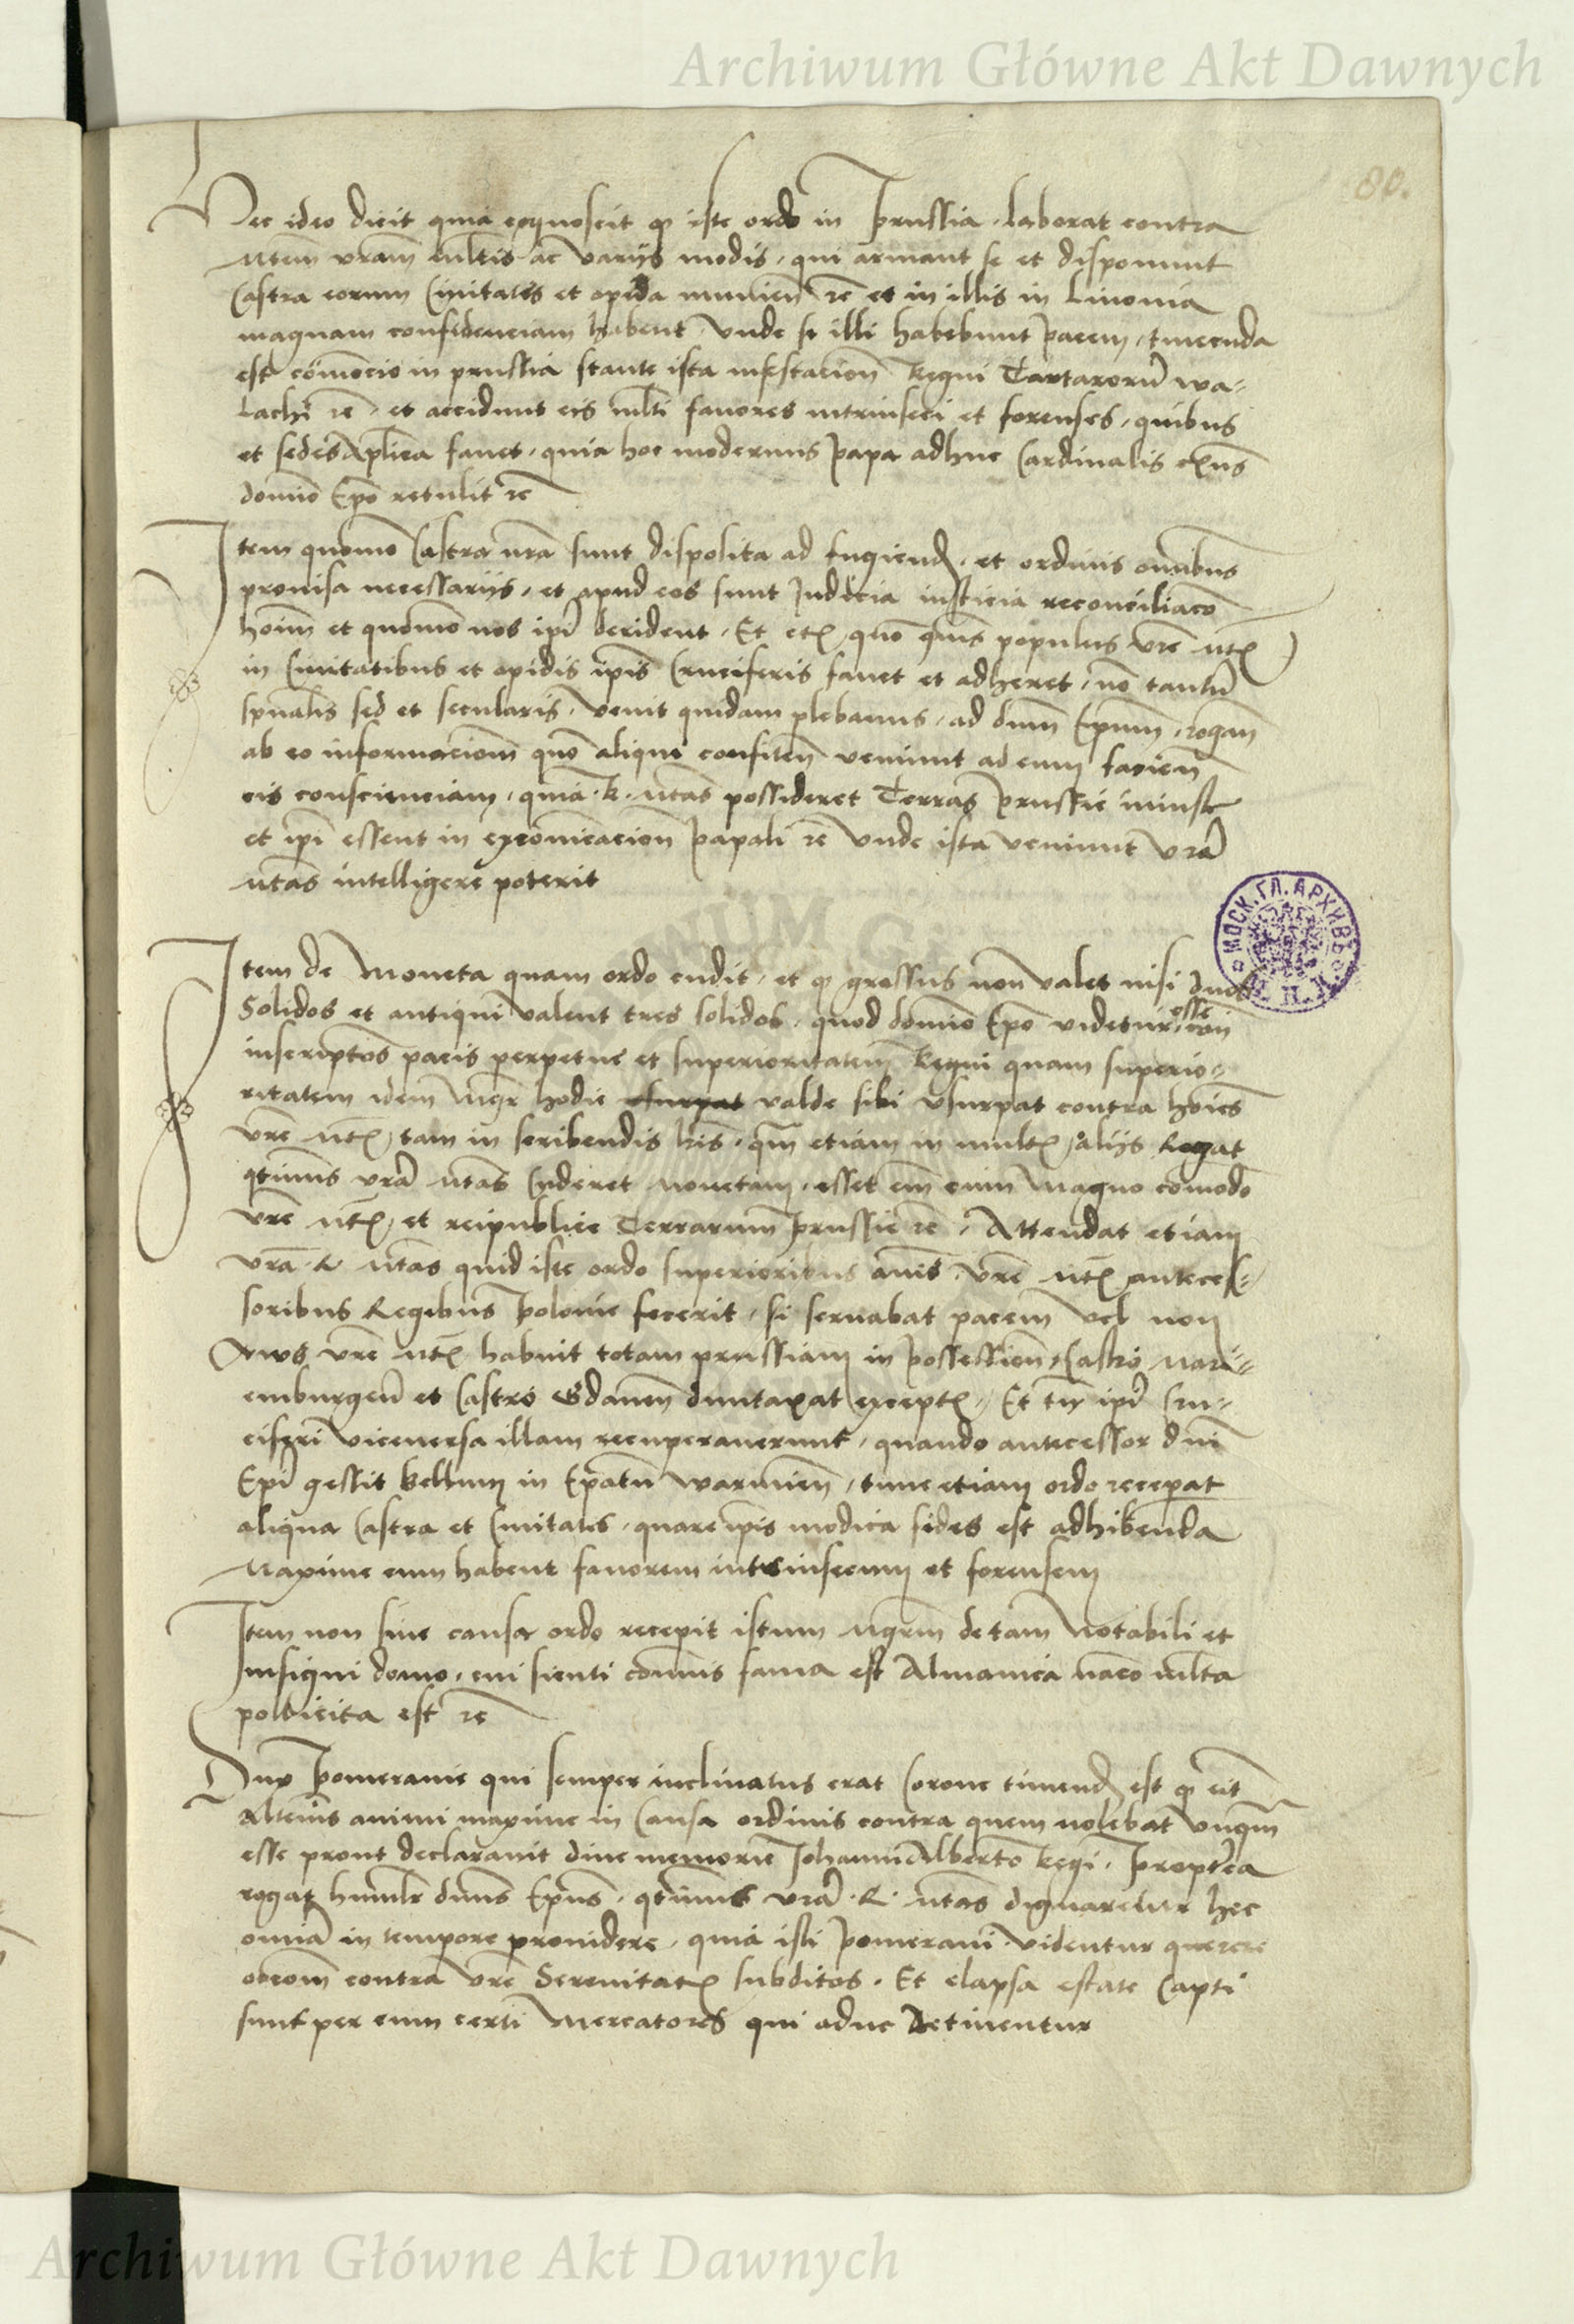 Archiwum Główne Akt Dawnych
80.
Nec ideo dicit quia cognoscit qꝫ iste ordo in Prussia laborat contra
Mtem vram multis ac varijs modis, qui armant se et disponunt
Castra eorum Civitates et opida munien rc et in illis in Livonia
magnam confidenciam habent Unde si illi habebunt pacem, timenda
est comocio in prussia stante ista infestacion Regni Tartarorū wa-
lachi rc, et accidunt eis mlti favores intrinseci et forenses, quibus
et sedes Aplica favet, quia hoc modernus Papa adhuc Cardinalis exns
domino Epo retulit rc
Item quomo Castra nra sunt disposita ad fugiend, et ordinis omnibus
provisa necessarijs, et apud eos sunt Judicia iusticia reconciliaco
hoim et quomo nos ipi derident, Et etꝫ quo quis populus vre Mtꝫ
in Civitatibus et opidis ipis Cruciferis favet et adheret, no tantū
spualis sed et secularis, Venit quidam plebanus, ad dnm Epum, rogan
ab eo informacionē quo aliqui confiten veniunt ad eum facien
eis conscienciam, quia R. Mtas possideret Terras Prussie iniuste
et ipi essent in excomicacion papali rc Unde ista veniunt vra
Mtas intelligere poterit
Item de Moneta quam ordo cudit, et qꝫ grossus non valet nisi duos
Solidos et antiqui valent tres solidos, quod domino Epo videtur esse con
inscriptos pacis perpetue et superioritatem Regni quam superio-
ritatem idem Mgr hodie valde sibi usurpat contra hoies
vre Mtꝫ, tam in scribendis lris, qm etiam in multꝫ alijs Rogat
qtinus vra Mtas Cuderet Monetam, esset em cum magno comodo
vre Mtꝫ, et reipublice Terrarum Prussie rc, Attendat etiam
vra R Mtas quid iste ordo superioribus annis vre Mtꝫ anteces-
soribus Regibus Polonie fecerit, si servabat pacem vel non
Avus vre Mtꝫ habuit totam prussiam in possession, Castro Mari-
emburgen et Castro Gdanen duntaxat exceptꝫ, Et tn ipi Cru-
ciferi viceversa illam recuperaverunt, quando antecessor dni
Epi gessit bellum in Epatu Warmien, tunc etiam ordo receperat
aliqua Castra et Civitates, quare ipis modica fides est adhibenda
Maxime cum habent favorem intrinsecum et forensem
Item non sine causa ordo recepit istum Mgrm de tam Notabili et
Insigni domo, cui sicuti comis fama est Almanica naco multa
pollicita est rc
Dux Pomeranie qui semper inclinatus erat Corone timend est qꝫ eit
alterius animi maxime in Causa ordinis contra quem nolebat unqm
esse prout declaravit dive memorie Johanni Alberto Regi, Propterea
rogat humilr dnus Epus, qtinus vra R. Mtas dignaretur hec
omia in tempore providere, quia isti Pomerani videntur querere
occom contra vre Serenitatꝫ subditos. Et elapsa estate Capti
sunt per eum certi Mercatores qui aduc Detinentur
МОСК. ГЛ. АРХИВЪ
Archiwum Główne Akt Dawnych